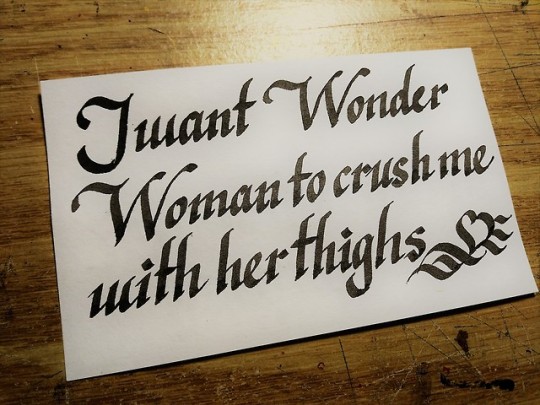 I want Wonder
Woman to crush me
with her thighs